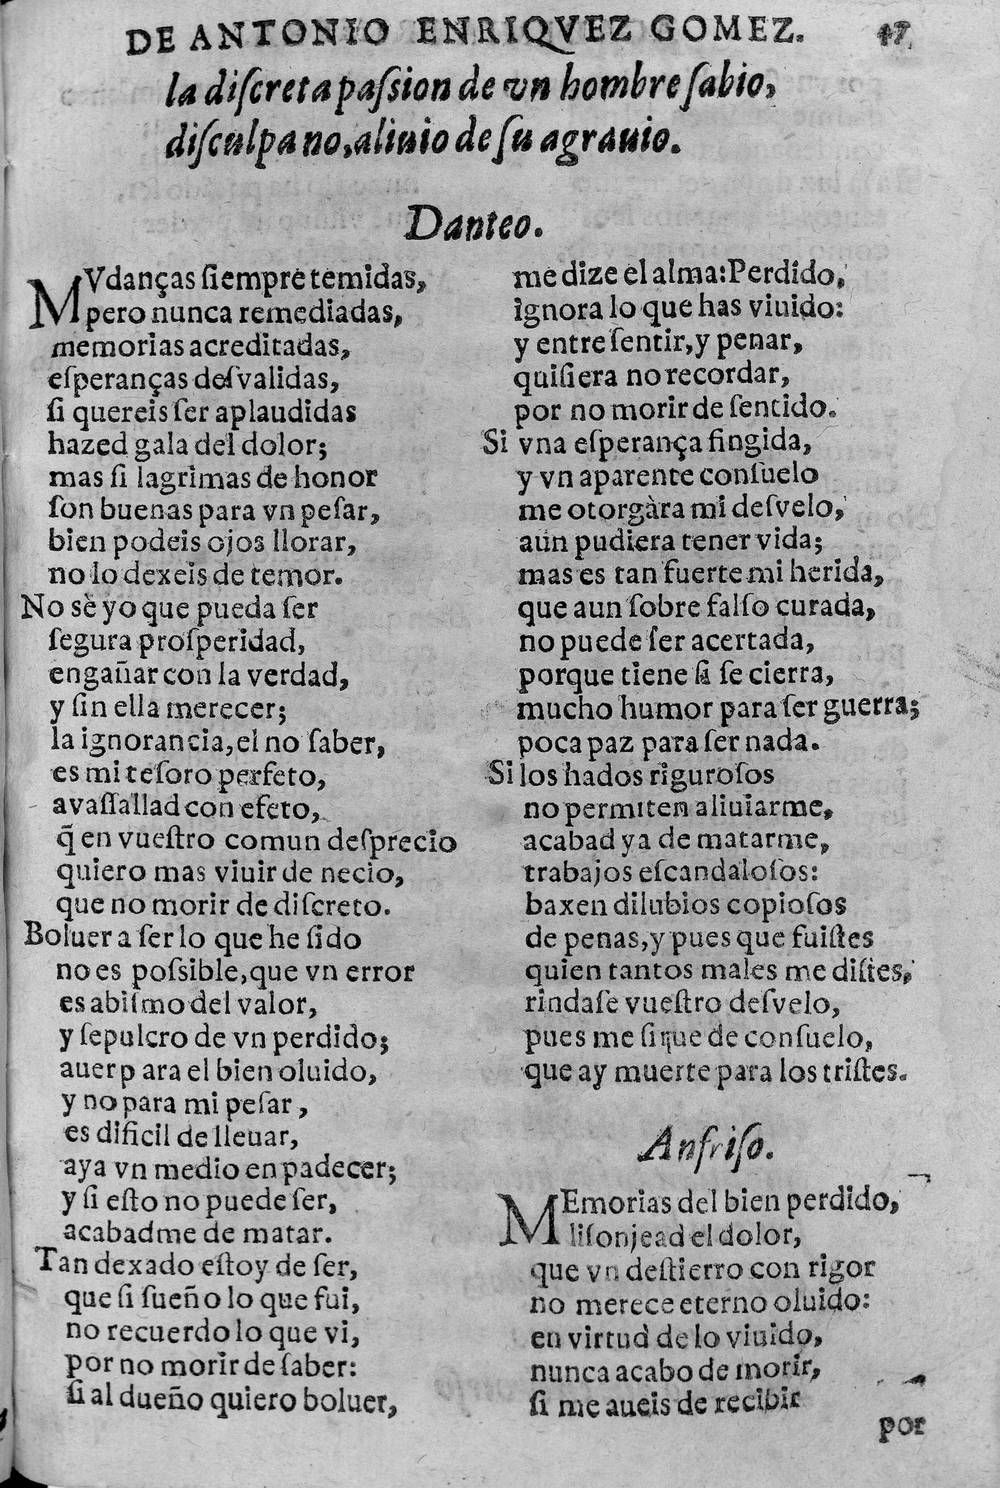 DE ANTONIO ENRIQVEZ GOMEZ. 47
la diſcreta paſsion de vn hombre ſabio,
diſculpa no, aliuio de ſu agrauio.
Danteo.
MVdanças ſiempre temidas,
pero nunca remediadas,
memorias acreditadas,
eſperanças deſvalidas,
ſi quereis ſer aplaudidas
hazed gala del dolor;
mas ſi lagrimas de honor
ſon buenas para vn peſar,
bien podeis ojos llorar,
no lo dexeis de temor.
No sè yo que pueda ſer
ſegura proſperidad,
engañar con la verdad,
y ſin ella merecer;
la ignorancia, el no ſaber,
es mi teſoro perfeto,
avaſſallad con efeto,
q̃ en vueſtro comun deſprecio
quiero mas viuir de necio,
que no morir de diſcreto.
Boluer a ſer lo que he ſido
no es poſsible, que vn error
es abiſmo del valor,
y ſepulcro de vn perdido;
auer para el bien oluido,
y no para mi peſar,
es dificil de lleuar,
aya vn medio en padecer;
y ſi eſto no puede ſer,
acabadme de matar.
Tan dexado eſtoy de ſer,
que ſi ſueño lo que fui,
no recuerdo lo que vi,
por no morir de ſaber:
ſi al dueño quiero boluer,
me dize el alma: Perdido,
ignora lo que has viuido:
y entre ſentir, y penar,
quiſiera no recordar,
por no morir de ſentido.
Si vna eſperança fingida,
y vn aparente conſuelo
me otorgàra mi deſvelo,
aun pudiera tener vida;
mas es tan fuerte mi herida,
que aun ſobre falſo curada,
no puede ſer acertada,
porque tiene ſi ſe cierra,
mucho humor para ſer guerra;
poca paz para ſer nada.
Si los hados riguroſos
no permiten aliuiarme,
acabad ya de matarme,
trabajos eſcandaloſos:
baxen dilubios copioſos
de penas, y pues que fuiſtes
quien tantos males me diſtes,
rindaſe vueſtro deſvelo,
pues me ſirue de conſuelo,
que ay muerte para los triſtes.
Anfriſo.
MEmorias del bien perdido,
liſonjead el dolor,
que vn deſtierro con rigor
no merece eterno oluido:
en virtud de lo viuido,
nunca acabo de morir,
ſi me aueis de recibir
por